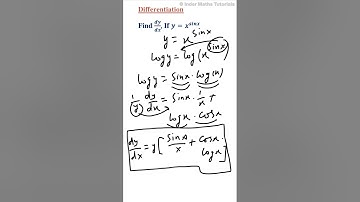 © Inder Maths Tutorials
Differentiation
Find dy/dx, If y = x^sinx
y = x^sinx
log y = log (x^sinx)
log y = sinx · log(x)
1/y dy/dx = sinx · 1/x +
log x · cosx
dy/dx = y [ sinx/x + cosx ·
log x ]